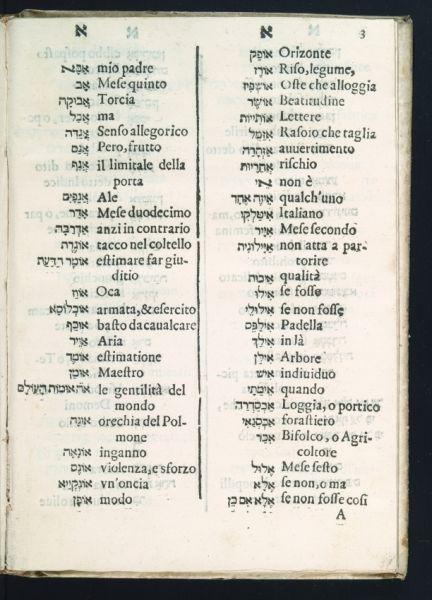 א א 3
אבא mio padre
אב Mese quinto
אבוקה Torcia
אבל ma
אגדה Senso allegorico
אגס Pero, frutto
אגף il limitale della
porta
אגפים Ale
אדר Mese duodecimo
אדרבה anzi in contrario
אוגרת tacco nel coltello
אומד הדעת estimare far giu-
ditio
אווז Oca
אוכלוסא armata, & esercito
אוכף basto da caualcare
אויר Aria
אומד estimatione
אומן Maestro
אומות העולם le gentilità del
mondo
אונה orechia del Pol-
mone
אונאה inganno
אונס violenza, e sforzo
אונקיא vn'oncia
אופן modo
אופק Orizonte
אורז Riso, legume,
אושפיז Oste che alloggia
אושר Beatitudine
אותיות Lettere
אזמל Rasoio che taglia
אזהרה auuertimento
אחריות rischio
אי non è
איזה אחד qualch'uno
איטלקי Italiano
אייר Mese secondo
איילונית non atta a par-
torire
איכות qualità
אילו se fosse
אילולי se non fosse
אילפס Padella
אילך in là
אילן Arbore
איש indiuiduo
אימתי quando
אכסדרה Loggia, o portico
אכסנאי forastiero
אכר Bifolco, o Agri-
coltore
אלול Mese sesto
אלא se non, o ma
אלא אם כן se non fosse cosi
A